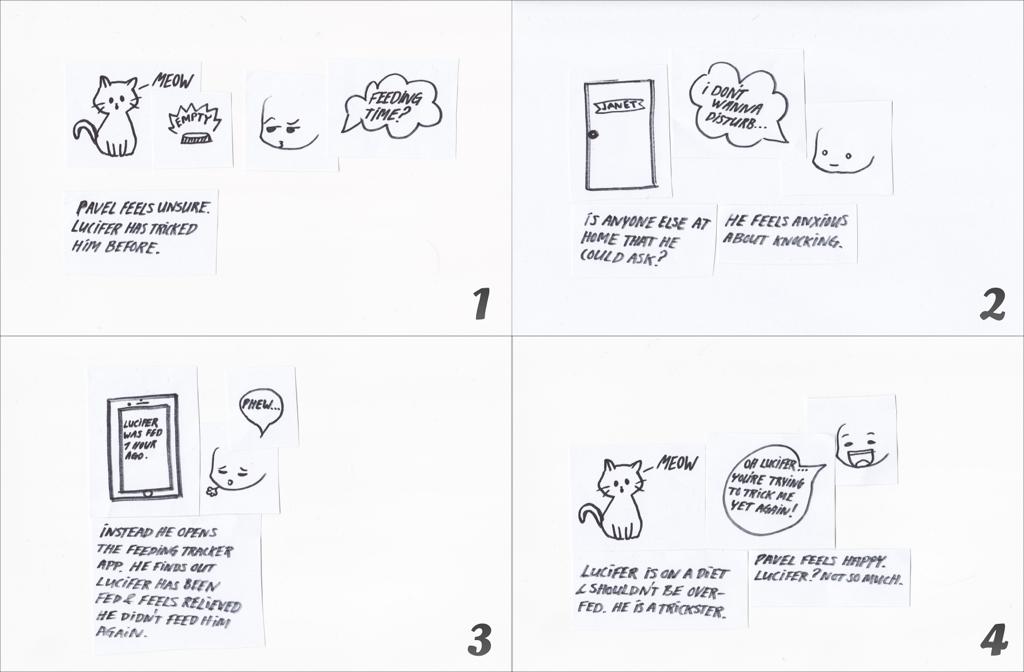 MEOW
EMPTY
FEEDING
TIME?
PAVEL FEELS UNSURE.
LUCIFER HAS TRICKED
HIM BEFORE.
1
JANET
I DON'T
WANNA
DISTURB...
IS ANYONE ELSE AT
HOME THAT HE
COULD ASK?
HE FEELS ANXIOUS
ABOUT KNOCKING.
2
LUCIFER
WAS FED
1 HOUR
AGO.
PHEW...
INSTEAD HE OPENS
THE FEEDING TRACKER
APP. HE FINDS OUT
LUCIFER HAS BEEN
FED & FEELS RELIEVED
HE DIDN'T FEED HIM
AGAIN.
3
MEOW
OH LUCIFER...
YOU'RE TRYING
TO TRICK ME
YET AGAIN!
LUCIFER IS ON A DIET
& SHOULDN'T BE OVER-
FED. HE IS A TRICKSTER.
PAVEL FEELS HAPPY.
LUCIFER? NOT SO MUCH.
4